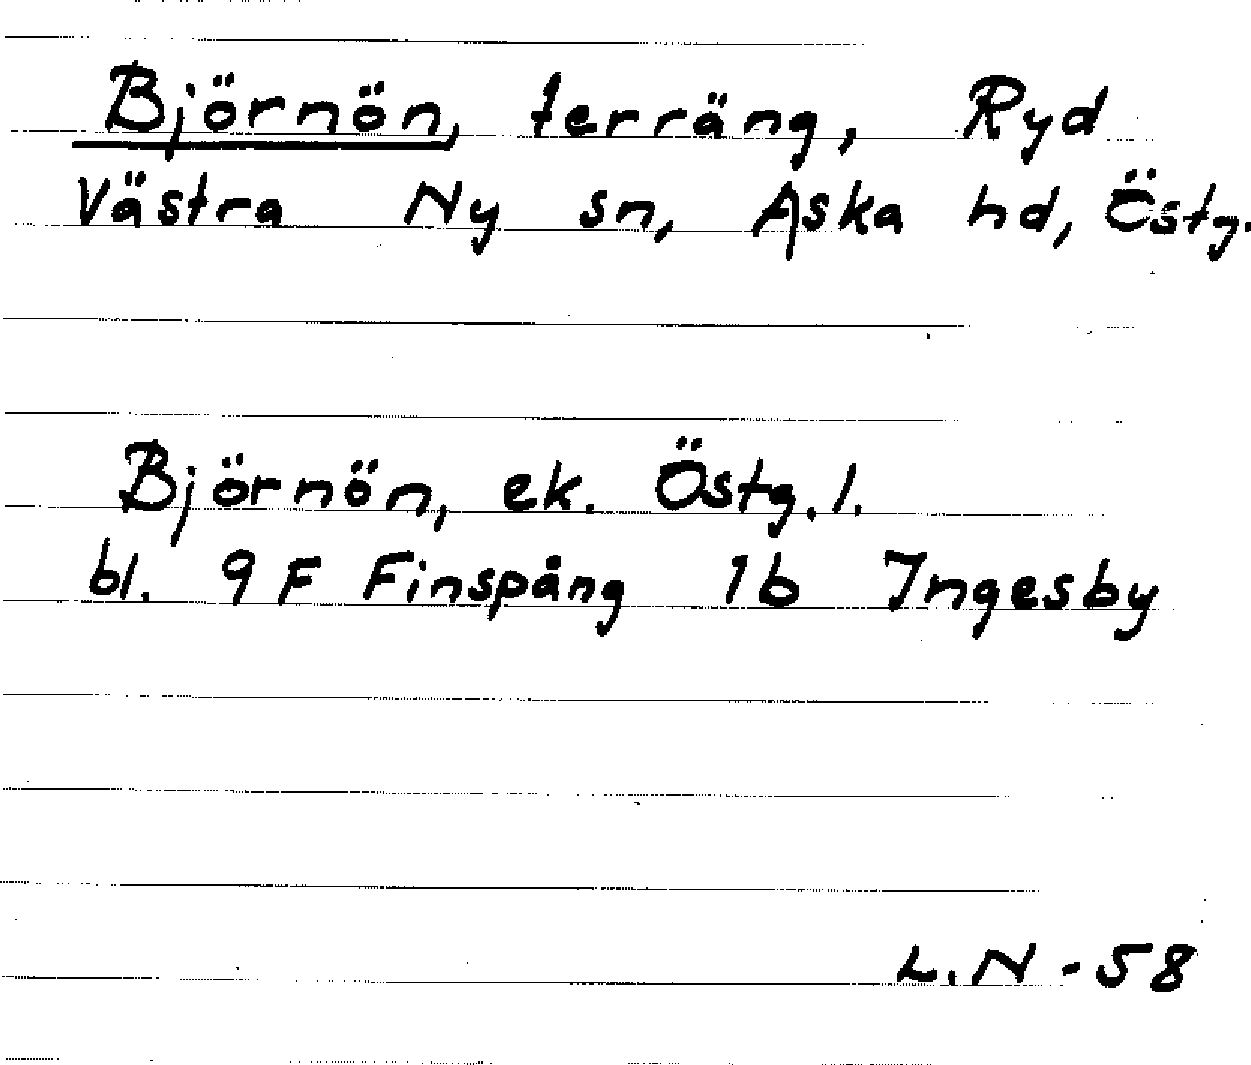 Björnön, terräng, Ryd
Västra Ny sn, Aska hd, Östg.
Björnön, ek. Östg. l.
bl. 9 F Finspång 1b Ingesby
L.N - 58